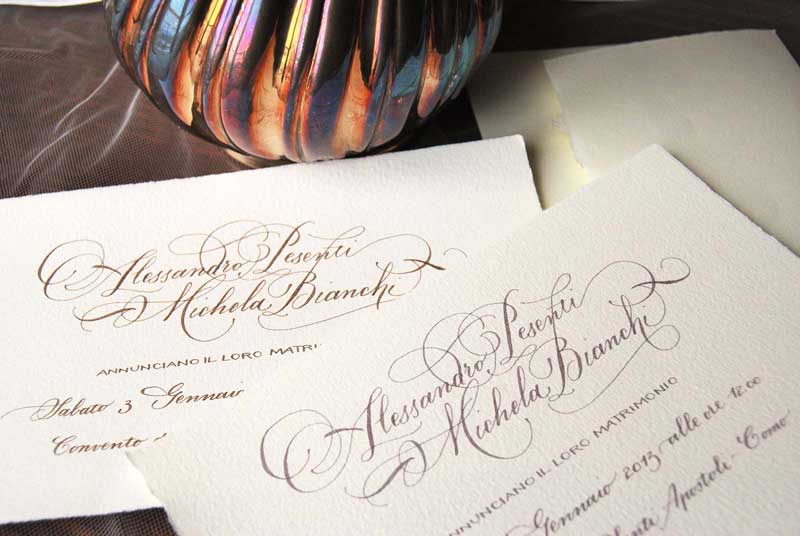 Alessandro Pesenti
Michela Bianchi
ANNUNCIANO IL LORO MATRI
Sabato 3 Gennaio
Convento
Alessandro Pesenti
Michela Bianchi
ANNUNCIANO IL LORO MATRIMONIO
Gennaio 2013 alle ore 12.00
Apostoli - Como